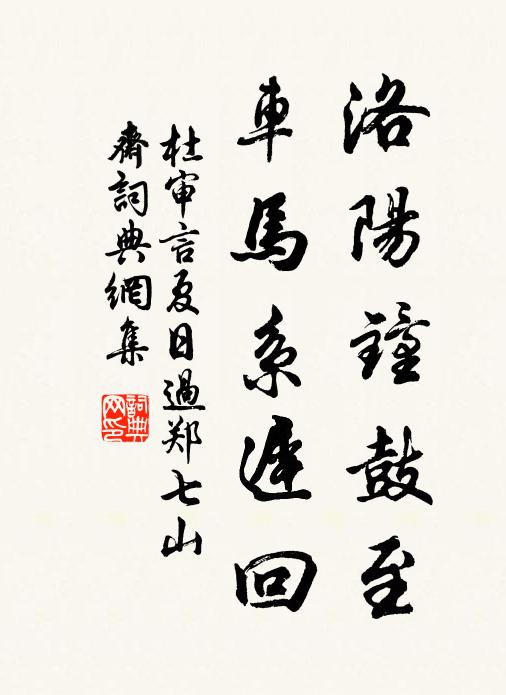 洛陽鐘鼓至
車馬系遲回
杜审言夏日過郑七山
齋詞典網集
詞典
网印